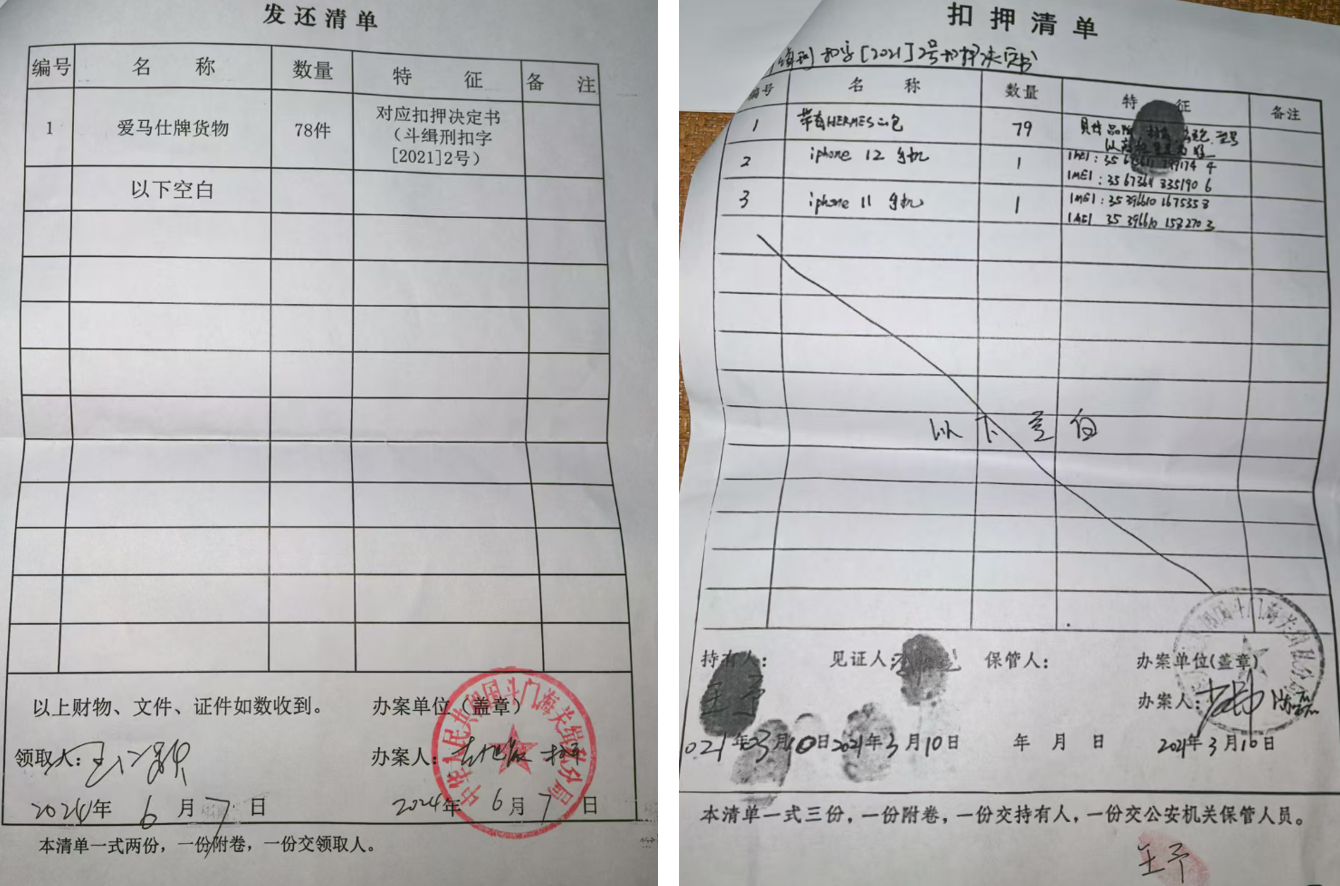 发还清单
编号 名 称 数量 特 征 备 注
1 爱马仕牌货物 78件 对应扣押决定书
（斗缉刑扣字
[2021]2号）
以下空白
以上财物、文件、证件如数收到。
办案单位（盖章）
领取人：
办案人：
2024年6月7日
2024年6月7日
中华人民共和国斗门海关缉私分局
本清单一式两份，一份附卷，一份交领取人。
扣押清单
缉刑扣字[2021]2号扣押决定书
编号 名 称 数量 特 征 备注
1 带有HERMES的包 79
2 iphone 12 手机 1
IMEI：35 67364 835190 6
3 iphone 11 手机 1 IMEI：35 396610 167535 8
IMEI 35 396610 158270 3
以下空白
持有人：
王予
见证人：
保管人：
办案单位(盖章)
办案人：
2021年3月10日
2021年3月10日
年 月 日
2021年3月10日
本清单一式三份，一份附卷，一份交持有人，一份交公安机关保管人员。
王予